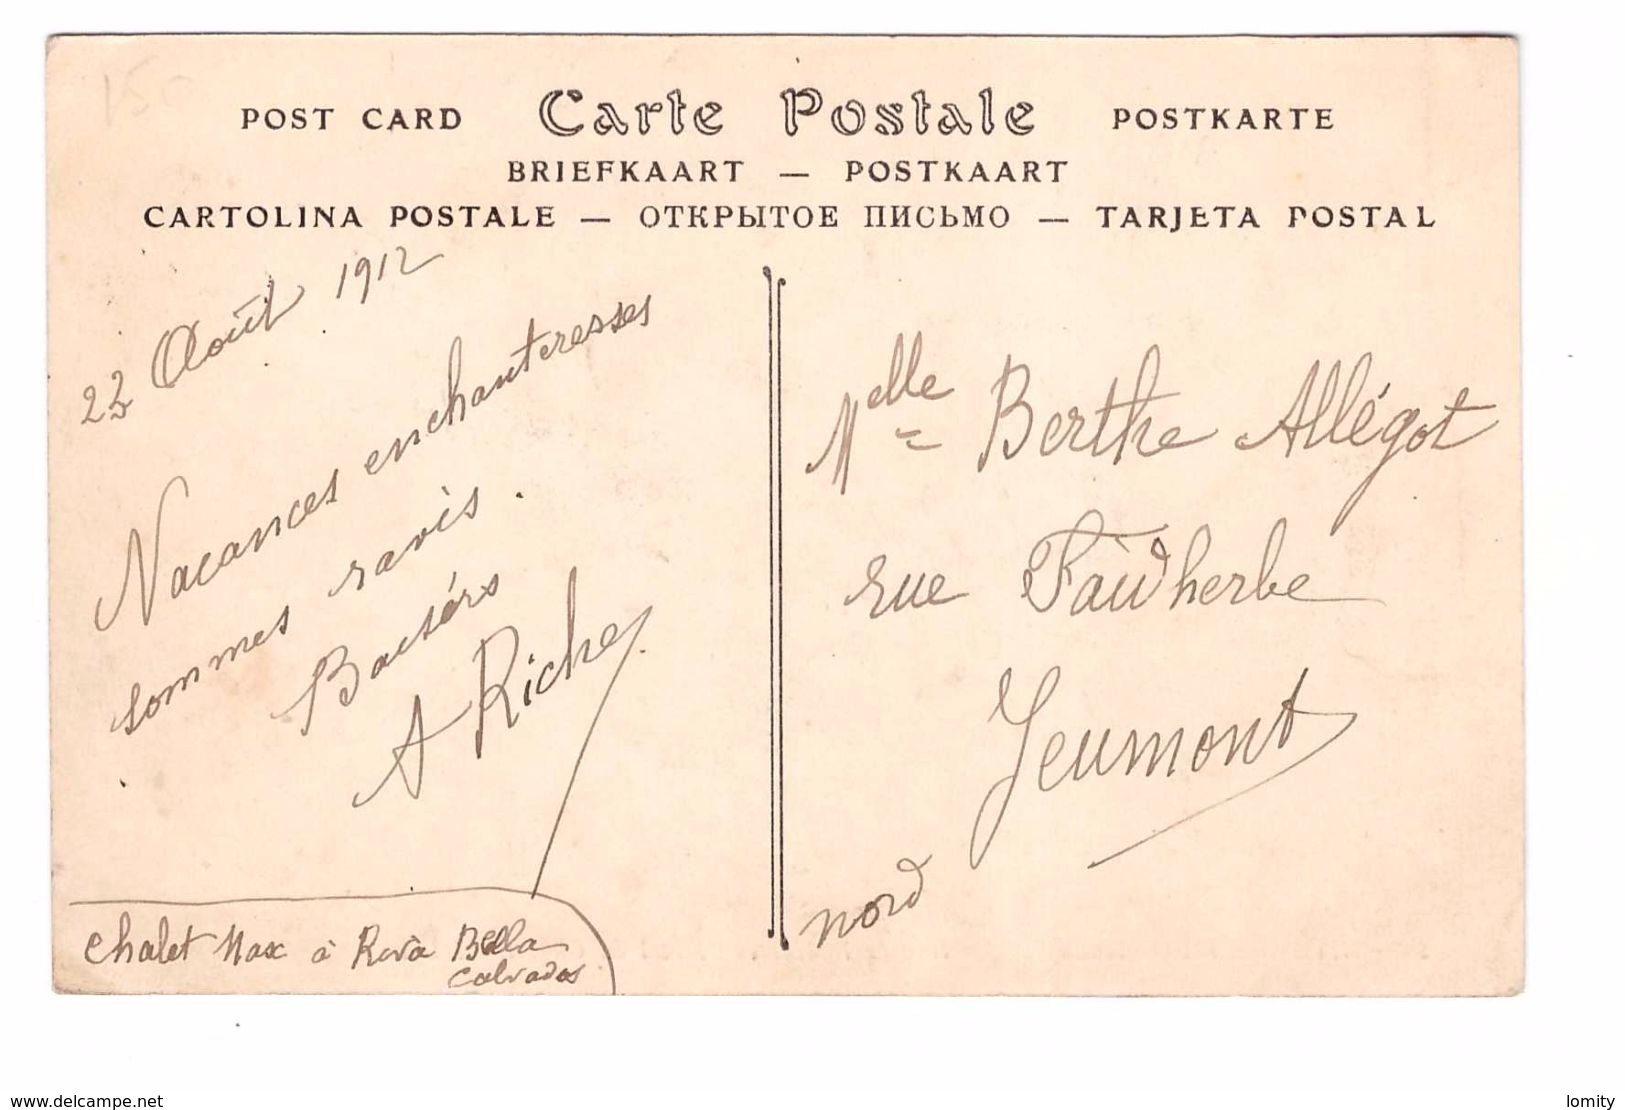 POST CARD Carte Postale POSTKARTE
BRIEFKAART — POSTKAART
CARTOLINA POSTALE — ОТКРЫТОЕ ПИСЬМО — TARJETA POSTAL
23 Août 1912
Vacances enchanteresses
sommes ravis.
A Riche
chalet Max à Riva Bella
calvados
Melle Berthe Allégot
rue Faidherbe
Jeumont
nord
www.delcampe.net
lomity